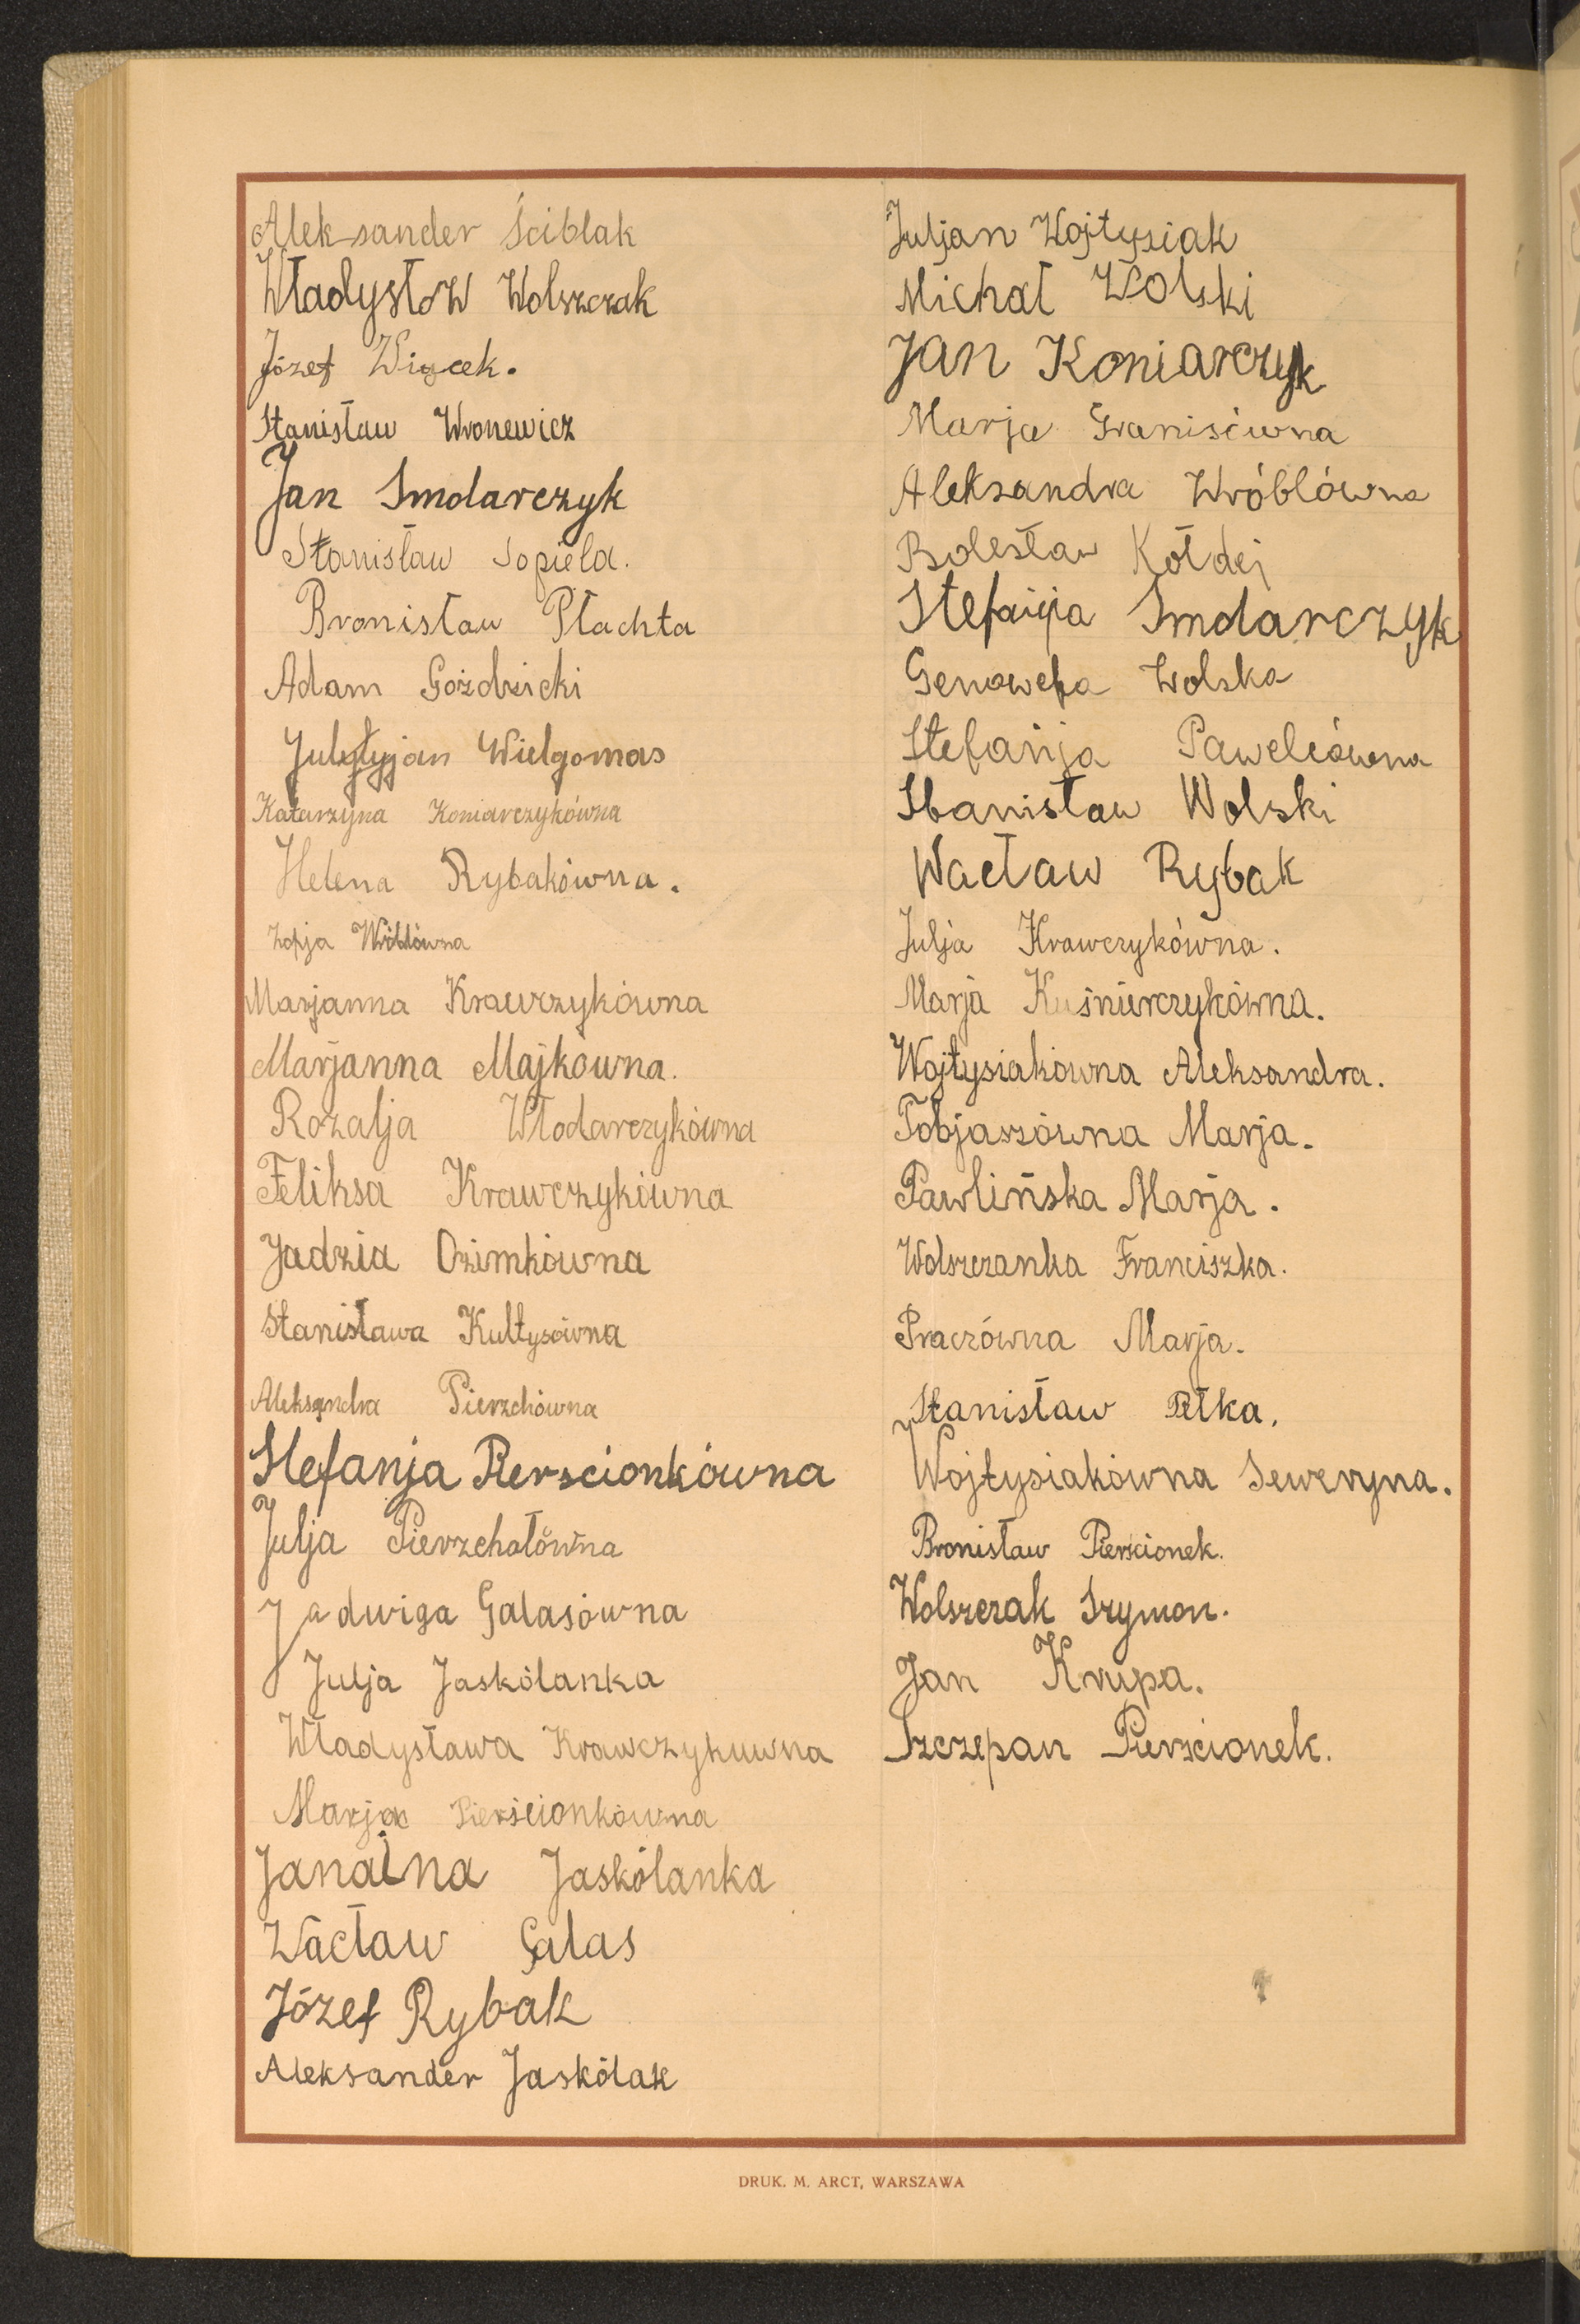 Aleksander Ściblak
Władysłow Wolszczak
Józef Wiącek.
Stanisław Wronewicz
Jan Smolarczyk
Stanisław Sopiela.
Bronisław Płachta
Adam Goździcki
Wielgomas
Katarzyna Koniarczykówna
Helena Rybakówna.
Zofja Wróblówna
Marjanna Krawczykówna
Marjanna Majkówna.
Rozalja Włodarczykówna
Feliksa Krawczykówna
Jadzia Ozimkówna
Stanisława Kułtysówna
Aleksandra Pierzchówna
Stefanja Pierscionkówna
Julja Pierzchałówna
Jadwiga Galasówna
Julja Jaskólanka
Władysława Krawczykuwna
Marja Pierścionkówna
Janaina Jaskólanka
Wacław Galas
Józef Rybak
Aleksander Jaskólak
Juljan Wojtysiak
Michał Wolski
Jan Koniarczyk
Marja
Aleksandra Wróblówna
Bolesław Kołdej
Stefanja Smolarczyk
Genowefa Wolska
Stefanja Pawelcówna
Stanisław Wolski
Wacław Rybak
Julja Krawczykówna.
Marja Kuśnierczykówna.
Wojtysiakówna Aleksandra.
Tobjaszówna Marja.
Pawlińska Marja.
Wolszczanka Franciszka.
Praczówna Marja.
Stanisław Pełka.
Wojtysiakówna Seweryna.
Bronisław Pierścionek.
Wolszczak Szymon.
Jan Krupa.
Szczepan Pierścionek.
DRUK. M. ARCT, WARSZAWA